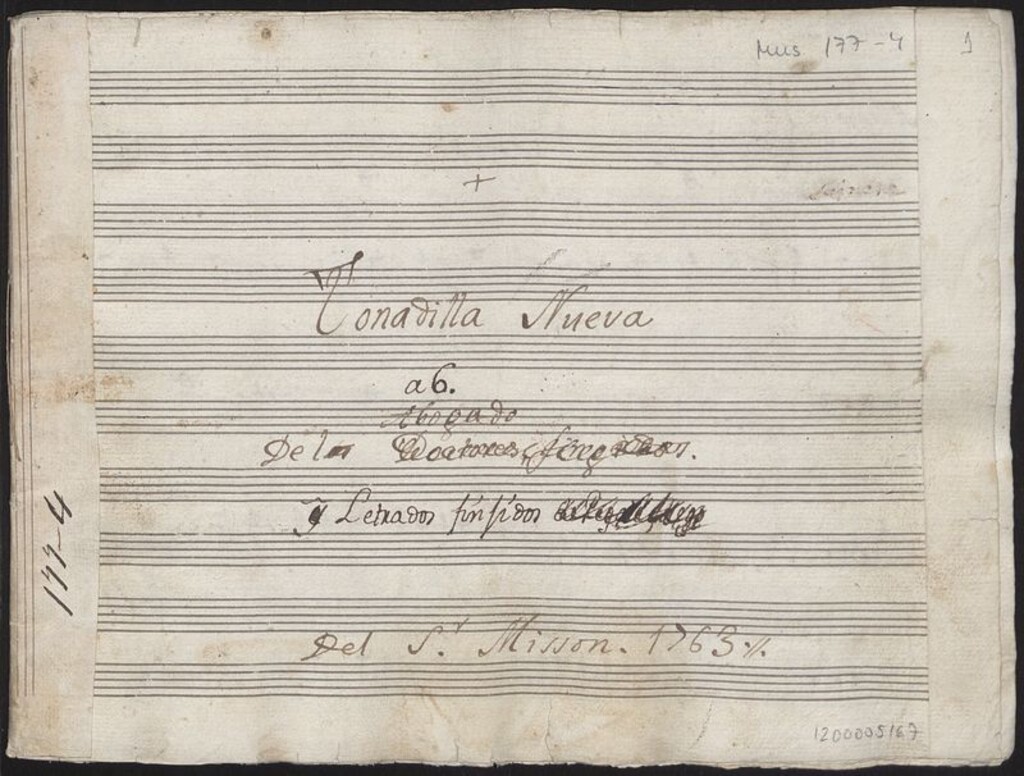 Mus 177-4
1
+
Tonadilla Nueva
a 6.
Abogado
De los Doctores fingidos.
y Letrados finjidos
Del S.r Misson. 1763.
177-4
1200005167